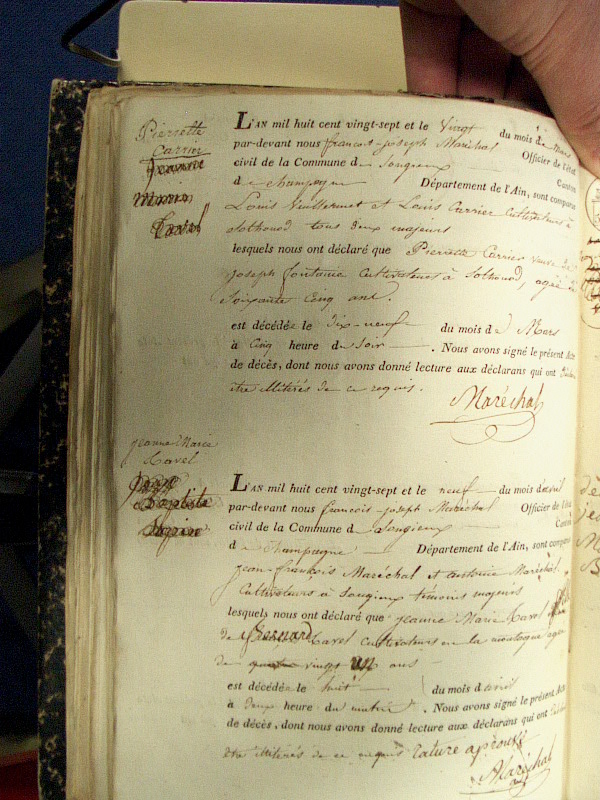 Pierrette
Carrier
L'AN mil huit cent vingt-sept et le Vingt du mois de Mars
par-devant nous françois-joseph Maréchal Officier de l'état
civil de la Commune de Songieux Canton
de champagne Département de l'Ain, sont comparus
Louis Vuillermet et Louis Carrier Cultivateurs à
Sothonod tous deux majeurs
lesquels nous ont déclaré que Pierrette Carrier veuve de
joseph fontaine Cultivateurs à Sothonod, agée de
Soixante Cinq ans.
est décédée le dix-neuf du mois de Mars
à Cinq heure du soir . Nous avons signé le présent Acte
de décès, dont nous avons donné lecture aux déclarans qui ont déclaré
être illitérés de ce requis.
Maréchal
jeanne Marie
Ravel
L'AN mil huit cent vingt-sept et le neuf du mois d'avril
par-devant nous francois-joseph Maréchal Officier de l'état
civil de la Commune de Songieux Canton
de champagne Département de l'Ain, sont comparus
jean-françois Maréchal et antoine Maréchal
Cultivateurs à Songieux témoins majeurs
lesquels nous ont déclaré que jeanne Marie Ravel
de Bernard Ravel cultivateurs en la montagne agée
de vingt un ans
est décédée le huit du mois d'avril
à deux heure du matin . Nous avons signé le présent Acte
de décès, dont nous avons donné lecture aux déclarans qui ont déclaré
être illitérés de ce requis rature aprouvé
Maréchal